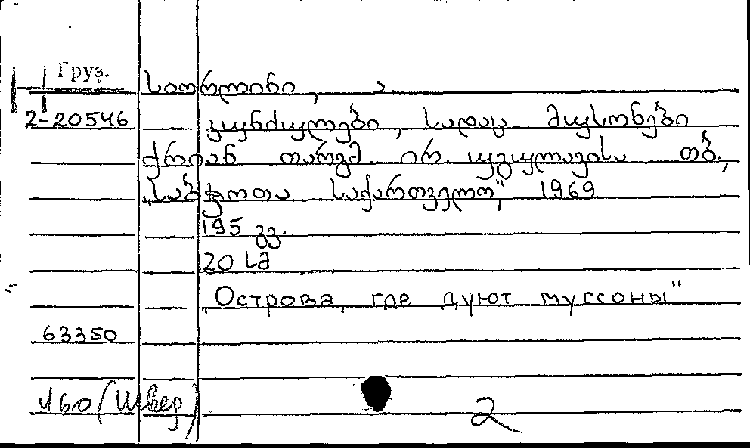 Груз.
2-20546
კუნძულები, სადაც მუსონები
ქრიან თარგმ. ირ. თბ.,
„საბჭოთა საქართველო", 1969
195 გვ.
20 სმ
„Острова, где дуют муссоны"
63350
И60 (Швед)
2